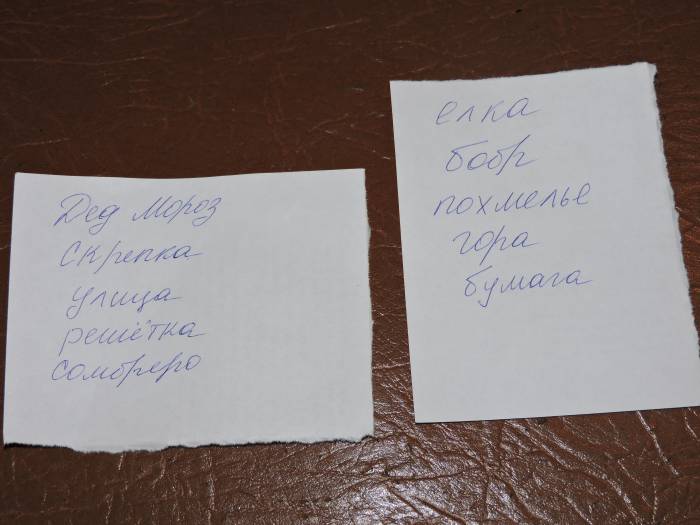 Дед Мороз
Скрепка
улица
решётка
сомбреро
елка
бобр
похмелье
гора
бумага